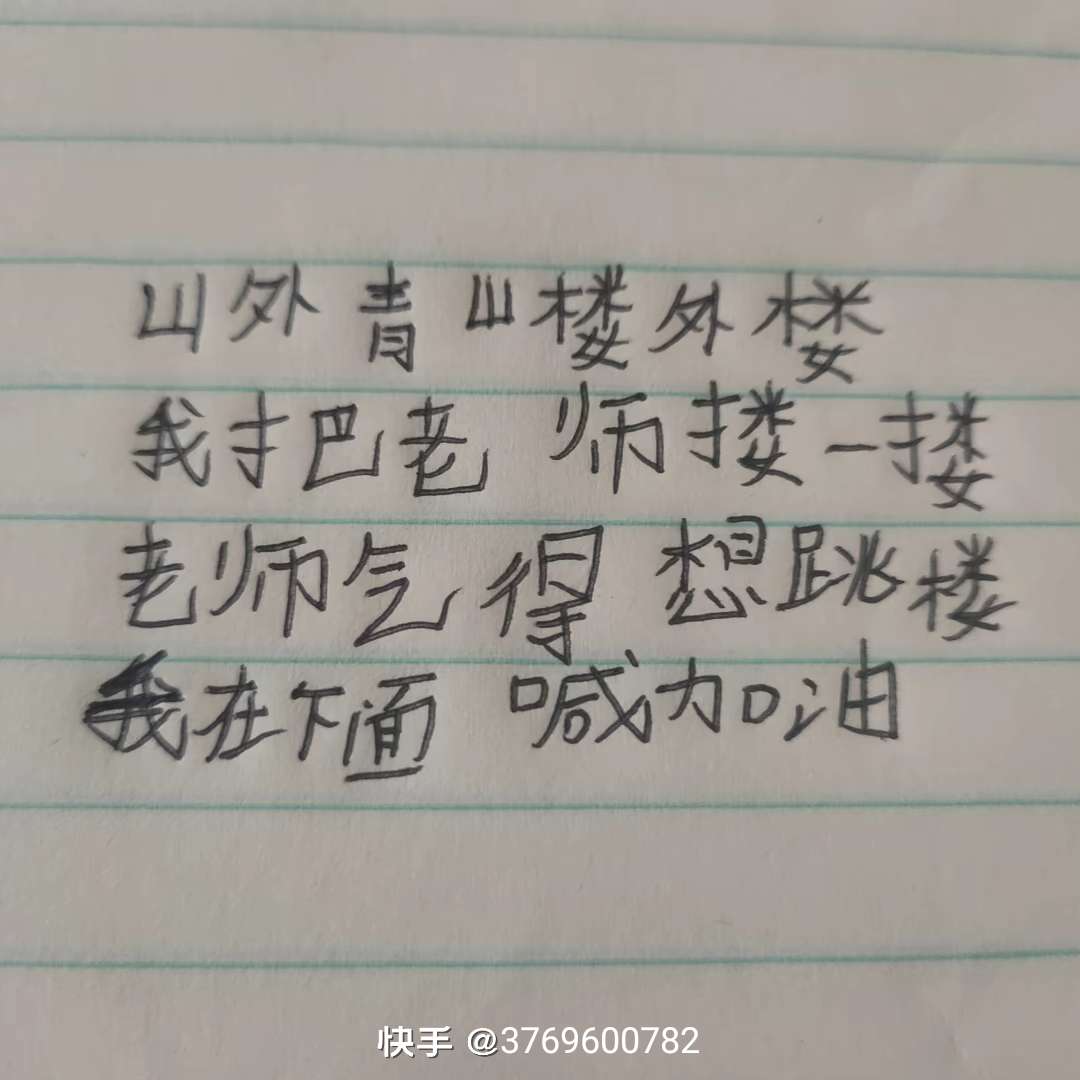 山外青山楼外楼
我把老师搂一搂
老师气得想跳楼
我在下面喊加油
快手 @3769600782